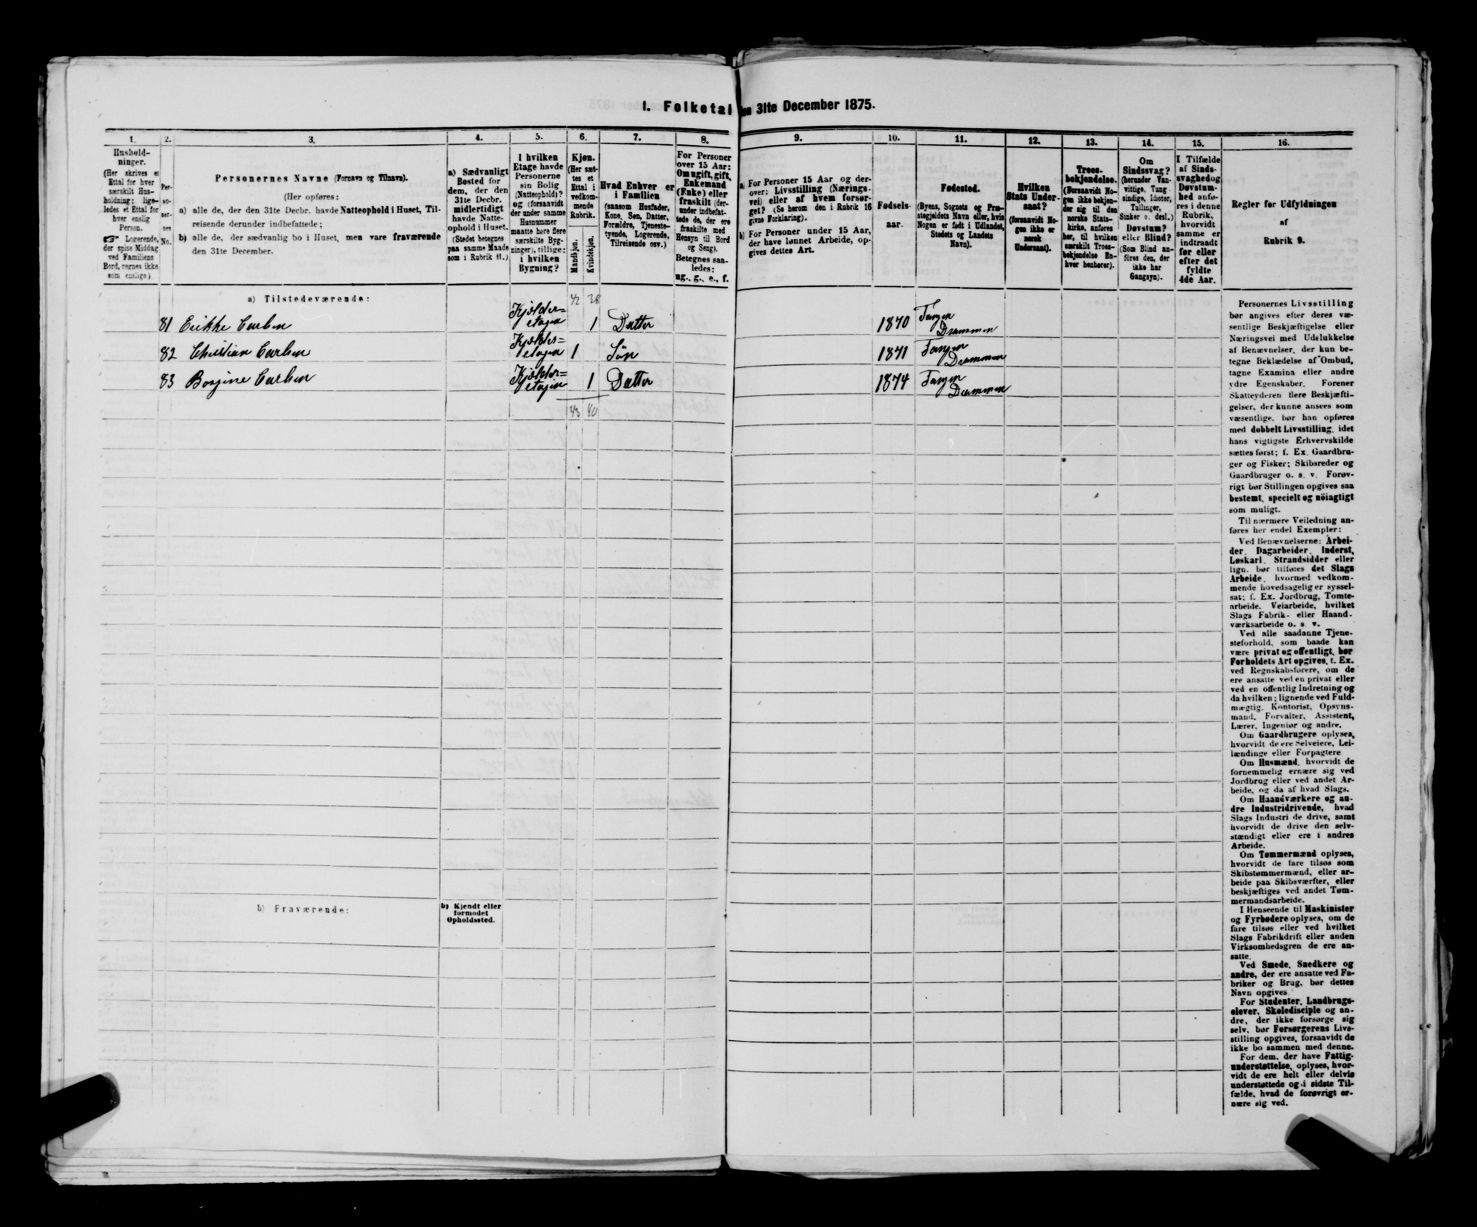 I. Folketal den 31te December 1875.
1. 2. 3. 4. 5. 6. 7. 8. 9. 10. 11. 12. 13. 14. 15. 16.
Hushold-
ninger.
(Her skrives et
Ettal for hver
særskilt Hus-
holdning; lige-
ledes et Ettal for
hver enslig
Person.
☞ Logerende,
der spise Middag
ved Familiens
Bord, regnes ikke
som enslige).
Per-
so-
ner-
nes
No.
Personernes Navne (Fornavn og Tilnavn).
(Her opføres:
a) alle de, der den 31te Decbr. havde Natteophold i Huset, Til-
reisende derunder indbefattede;
b) alle de, der sædvanlig bo i Huset, men vare fraværende
den 31te December.
a) Sædvanligt
Bosted for
dem, der den
31te Decbr.
midlertidigt
havde Natte-
ophold i Huset.
(Stedet betegnes
paa samme Maade
som i Rubrik 11.)
I hvilken
Etage havde
Personerne
sin Bolig
(Natteophold)?
og (forsaavidt
der under samme
Husnummer
maatte høre flere
særskilte Byg-
ninger), tillige:
i hvilken
Bygning?
Kjøn.
(Her sæt-
tes et
Ettal i
vedkom-
mende
Rubrik.
Mandkjøn.
Kvindekjøn.
Hvad Enhver er
i Familien
(saasom Husfader,
Kone, Søn, Datter,
Forældre, Tjeneste-
tyende, Logerende,
Tilreisende osv.)
For Personer
over 15 Aar:
Om ugift, gift,
Enkemand
(Enke) eller
fraskilt (der-
under indbefat-
tede de, der ere
fraskilte med
Hensyn til Bord
og Seng).
Betegnes saa-
ledes:
ug., g., e., f.
a) For Personer 15 Aar og der-
over: Livsstilling (Nærings-
vei) eller af hvem forsør-
get? (Se herom den i Rubrik 16
givne Forklaring).
b) For Personer under 15 Aar,
der have lønnet Arbeide, op-
gives dettes Art.
Fødsels-
aar.
Fødested.
(Byens, Sognets og Præ-
stegjeldets Navn eller, hvis
Nogen er født i Udlandet,
Stedets og Landets
Navn).
Hvilken
Stats Under-
saat?
(forsaavidt No-
gen ikke er
norsk
Undersaat).
Troes-
bekjendelse.
(Forsaavidt No-
gen ikke bekjen-
der sig til den
norske Stats-
kirke, anføres
her, til hvilken
særskilt Troes-
bekjendelse En-
hver henhører).
Om
Sindssvag?
(herunder Van-
vittige, Tung-
sindige, Idioter,
Tullinger,
Sinker o. desl.)
Døvstum?
eller Blind?
(Som Blind an-
føres den, der
ikke har
Gangsyn).
I Tilfælde
af Sinds-
svaghed og
Døvstum-
hed anfø-
res i denne
Rubrik,
hvorvidt
samme er
indtraadt
før eller
efter det
fyldte
4de Aar.
Regler for Udfyldningen
af
Rubrik 9.
a) Tilstedeværende:
42 38
81 Erikke Carlsen Kjelder=
etagen 1 Datter 1870 Tangen
Drammen
82 Christian Carlsen Kjelder=
etagen 1 Søn 1871 Tangen
Drammen
83 Carlsen Kjelder=
etagen 1 Datter 1874 Tangen
Drammen
43 40
b) Fraværende:
b) Kjendt eller
formodet
Opholdssted.
Personernes Livsstilling
bør angives efter deres væ-
sentlige Beskjæftigelse eller
Næringsvei med Udelukkelse
af Benævnelser, der kun be-
tegne Beklædelse af Ombud,
tagne Examina eller andre
ydre Egenskaber. Forener
Skatteyderen flere Beskjæfti-
gelser, der kunne ansees som
væsentlige, bør han opføres
med dobbelt Livsstilling, idet
hans vigtigste Erhvervskilde
sættes først; f. Ex. Gaardbru-
ger og Fisker; Skibsreder og
Gaardbruger o. s. v. Forøv-
rigt bør Stillingen opgives saa
bestemt, specielt og nöiagtigt
som muligt.
Til nærmere Veiledning an-
føres her endel Exempler:
Ved Benævnelserne: Arbei-
der, Dagarbeider, Inderst,
Løskarl, Strandsidder eller
lign. bør tilføies det Slags
Arbeide, hvormed vedkom-
mende hovedsagelig er syssel-
sat; f. Ex. Jordbrug, Tomte-
arbeide, Veiarbeide, hvilket
Slags Fabrik- eller Haand-
værksarbeide o. s. v.
Ved alle saadanne Tjene-
steforhold, som baade kan
være privat og offentligt, bør
Forholdets Art opgives, f. Ex.
ved Regnskabsførere, om de
ere ansatte ved en privat eller
ved en offentlig Indretning og
da hvilken; lignende ved Fuld-
mægtig, Kontorist, Opsyns-
mand, Forvalter, Assistent,
Lærer, Ingeniør og andre.
Om Gaardbrugere oplyses,
hvorvidt de ere Selveiere, Lei-
lændinge eller Forpagtere
Om Husmænd, hvorvidt de
fornemmelig ernære sig ved
Jordbrug eller ved andet Ar-
beide, og da af hvad Slags.
Om Haandværkere og an-
dre Industridrivende, hvad
Slags Industri de drive, samt
hvorvidt de drive den selv-
stændigt eller ere i andres
Arbeide.
Om Tømmermænd oplyses,
hvorvidt de fare tilsøs som
Skibstømmermænd, eller ar-
beide paa Skibsværfter, eller
beskjæftiges ved andet Tøm-
mermandsarbeide.
I Henseende til Maskinister
og Fyrbødere oplyses, om de
fare tilsøs eller ved hvilket
Slags Fabrikdrift eller anden
Virksomhedsgren de ere an-
satte.
Ved Smede, Snedkere og
andre, der ere ansatte ved Fa-
briker og Brug, bør dettes
Navn opgives
For Studenter, Landbrugs-
elever, Skoledisciple og an-
dre, der ikke forsørge sig
selv, bør Forsørgerens Livs-
stilling opgives, forsaavidt de
ikke bo sammen med denne.
For dem, der have Fattig-
understøttelse, oplyses, hvor-
vidt de ere helt eller delvis
understøttede og i sidste Til-
fælde, hvad de forøvrigt er-
nære sig ved.